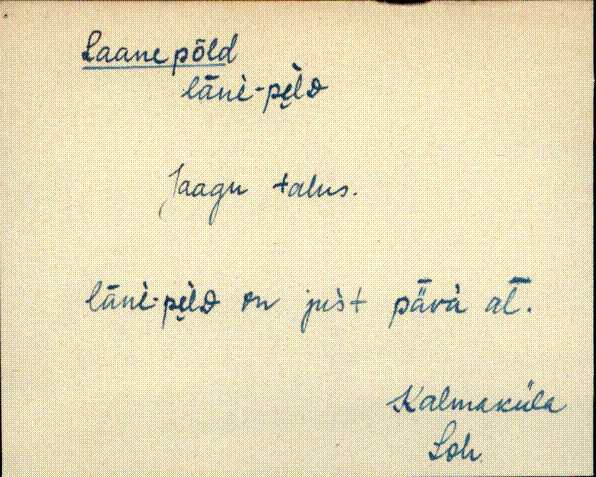 Laanepõld
lānè-pe̮lᴅ
Jaagu talus.
lānè-pe̮lᴅ on just pāvà al̄.
Kalmaküla
Loh.